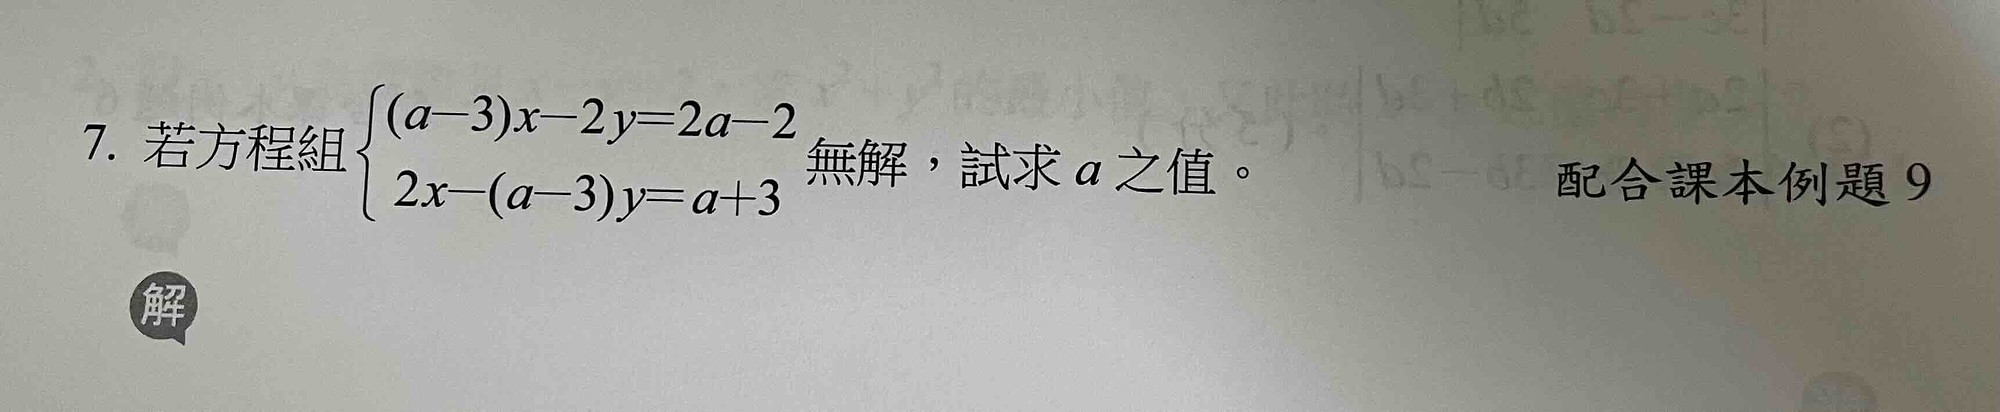 7. 若方程組{(a−3)x−2y=2a−2
2x−(a−3)y=a+3 無解，試求 a 之值。
配合課本例題 9
解